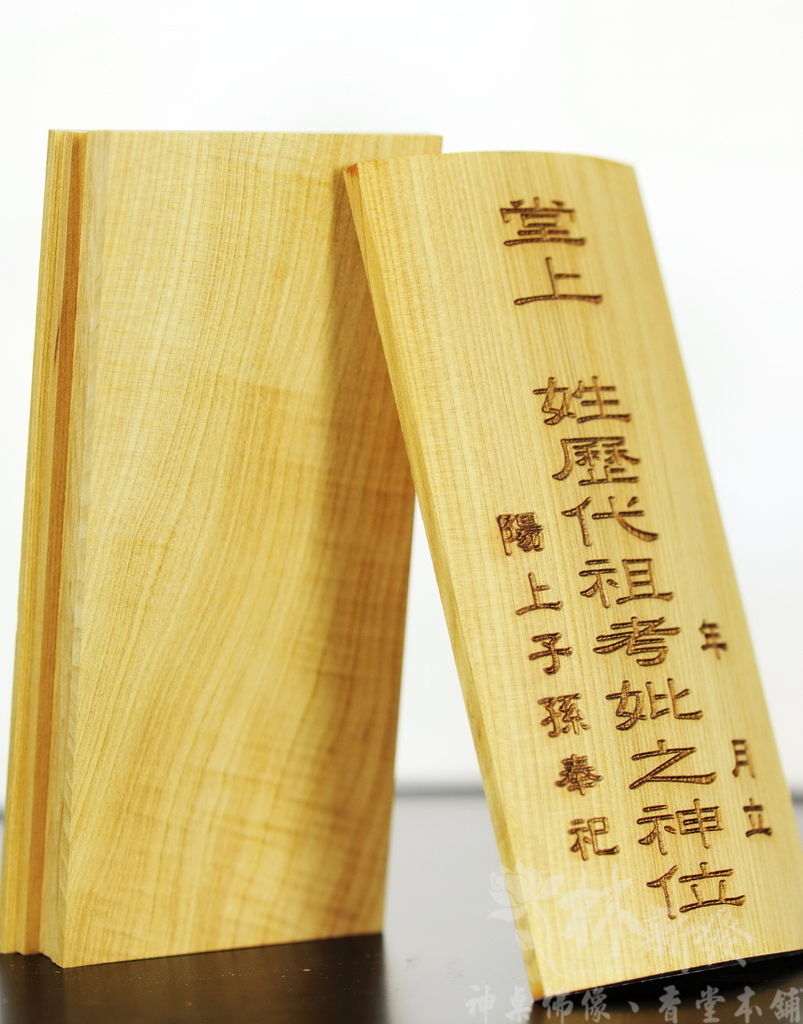 年 月立
堂上 姓歷代祖考妣之神位
陽上子孫奉祀
林新發
神桌佛像、香堂本舖